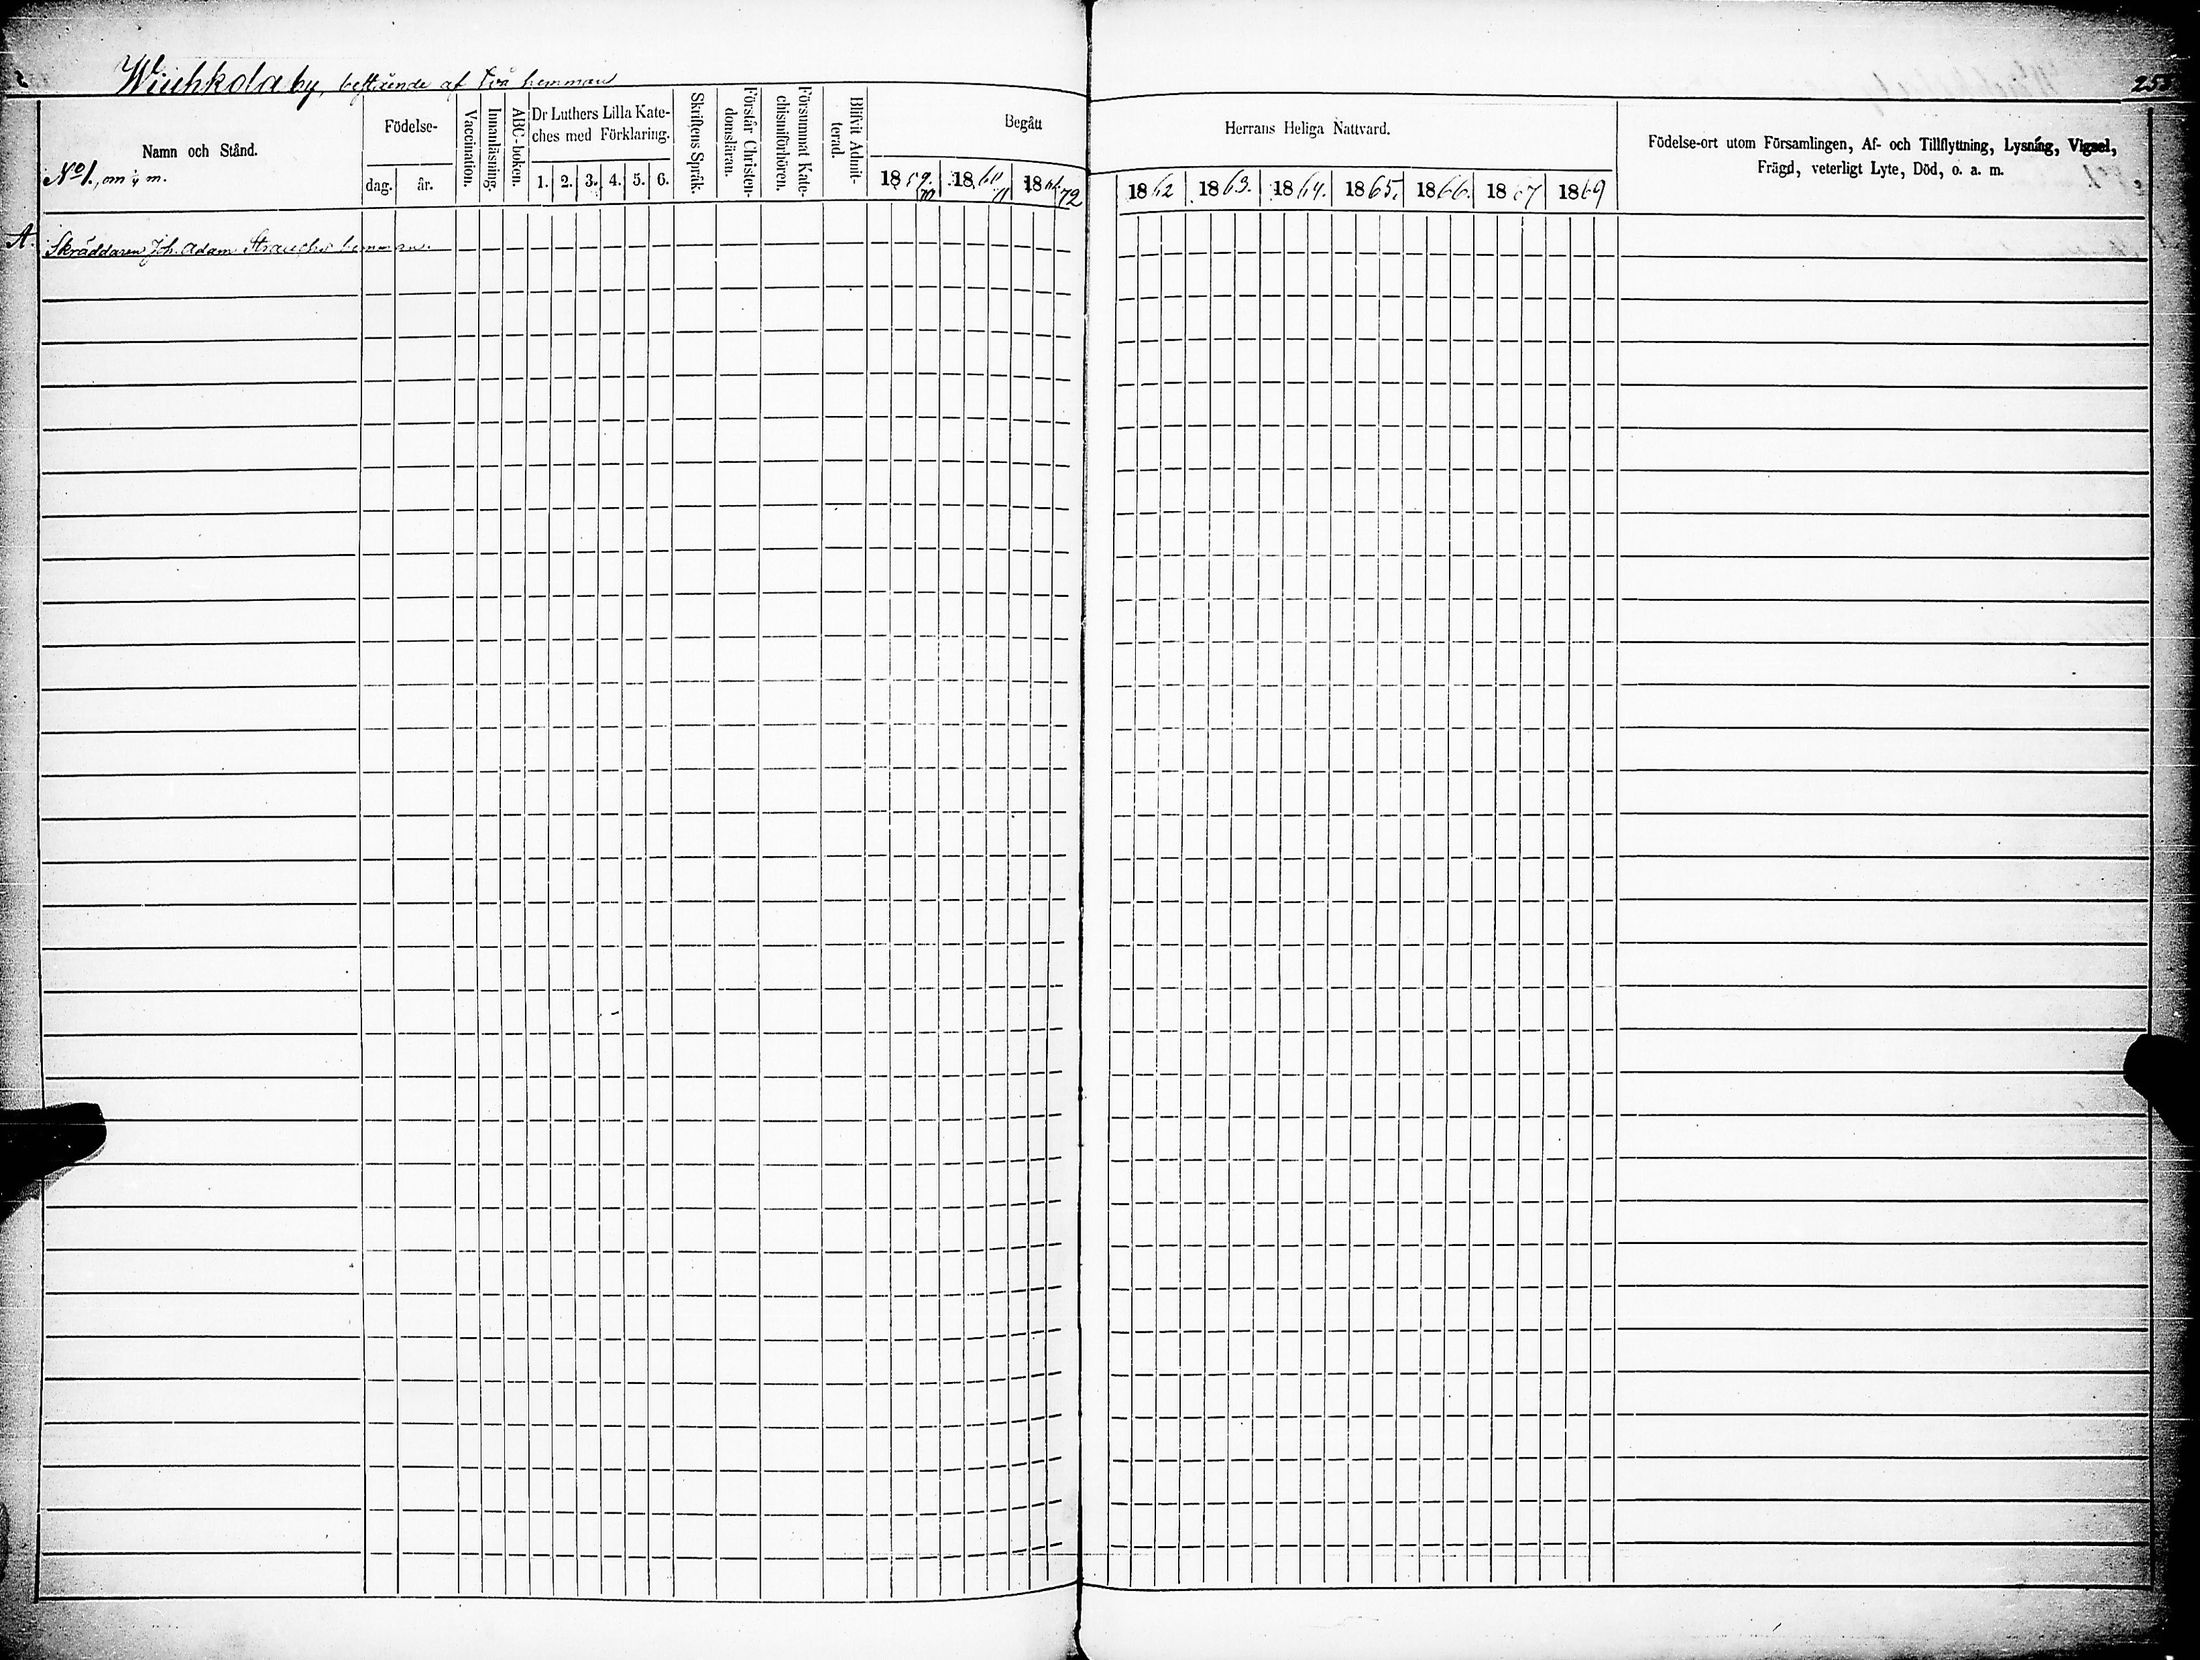 Wiuhkola by, bestående af två hemman
255
Namn och Stånd.
No 1., om 1/4 m.
Födelse-
dag. år.
Vaccination.
Innanläsning.
ABC-boken.
Dr Luthers Lilla Kate-
ches med Förklaring.
1. 2. 3. 4. 5. 6.
Skriftens Språk.
Förstår Christen-
domsläran.
Försummat Kate-
chismiförhören.
Blifvit Admit-
terad.
Begått
1859. 1860 1861.
70 71 72
Herrans Heliga Nattvard.
1862 1863. 1864. 1865. 1866. 1867 1869
Födelse-ort utom Församlingen, Af- och Tillflyttning, Lysning, Vigsel,
Frägd, veterligt Lyte, Död, o. a. m.
A.
Skräddaren Joh. Adam Strauchs hemman.